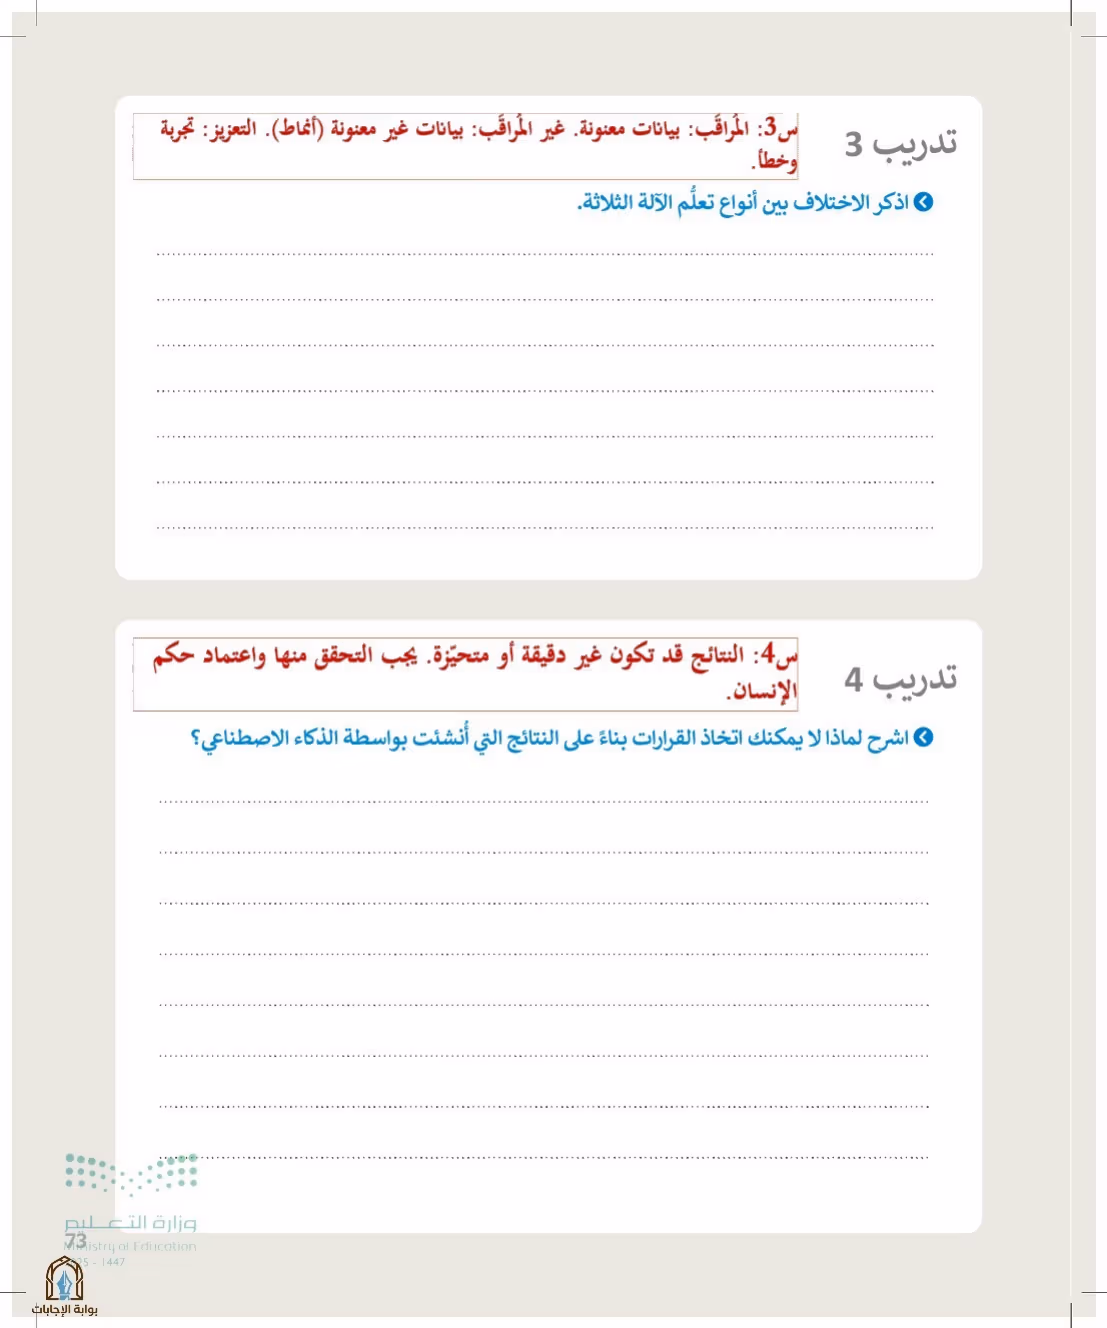 تدريب 3
س3: المُراقَب: بيانات معنونة. غير المُراقَب: بيانات غير معنونة (أنماط). التعزيز: تجربة
وخطأ.
اذكر الاختلاف بين أنواع تعلُّم الآلة الثلاثة.
تدريب 4
س4: النتائج قد تكون غير دقيقة أو متحيّزة. يجب التحقق منها واعتماد حكم
الإنسان.
اشرح لماذا لا يمكنك اتخاذ القرارات بناءً على النتائج التي أُنشئت بواسطة الذكاء الاصطناعي؟
وزارة التعـــليم
73
Ministry of Education
- 1447
بوابة الإجابات